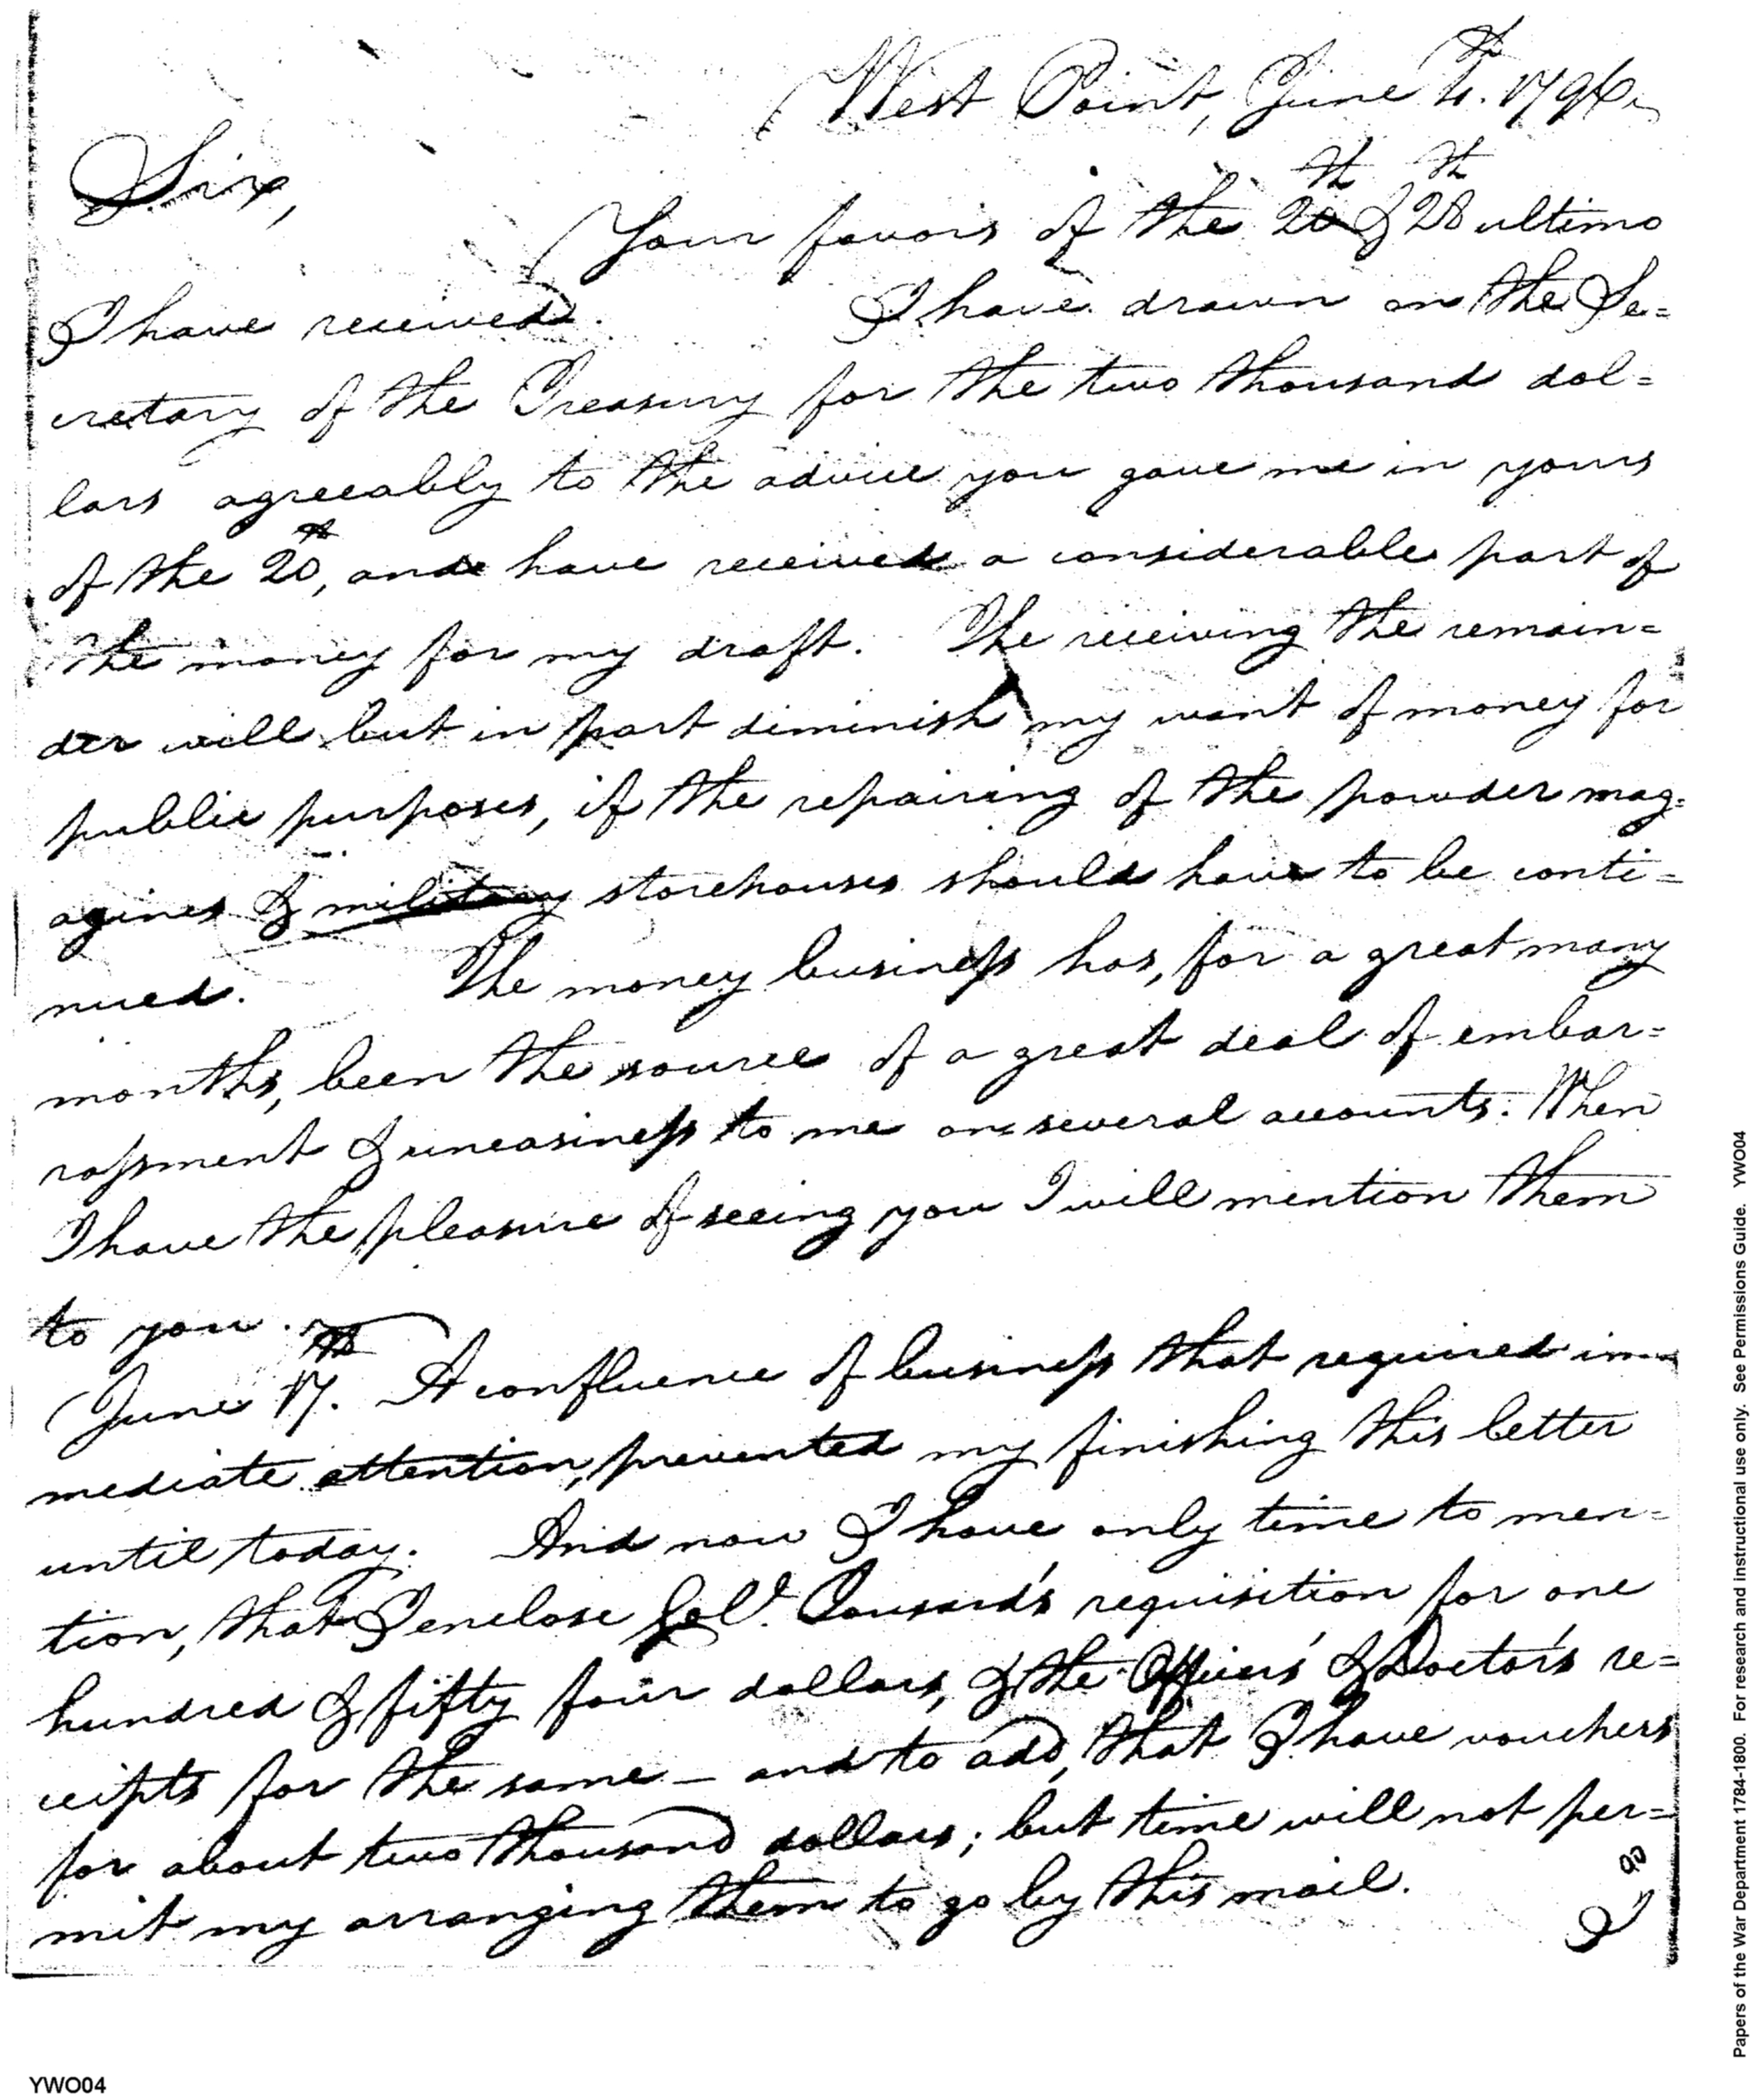 West Point, June 4.th 1796.
Sir,
Your favors of the 20th & 28th ultimo
I have received. I have drawn on the Se=
cretary of the Treasury for the two thousand dol=
lars agreeably to the advice you gave me in yours
of the 20th, and have received a considerable part of
the money for my draft. The receiving the remain=
der will but in part diminish my want of money for
public purposes, if the repairing of the powder mag=
azines & military storehouses should have to be conti=
nued. The money business has, for a great many
months, been the source of a great deal of embar=
rassment & uneasiness to me on several accounts. When
I have the pleasure of seeing you I will mention them
to you.
June 17th. A confluence of business that required im
mediate attention, prevented my finishing this letter
until today. And now I have only time to men=
tion, that I enclose requisition for one
hundred & fifty four dollars, & the Officers' & Doctor's re=
ceipts for the same — and to add, that I have vouchers
for about two thousand dollars; but time will not per=
mit my arranging them to go by this mail.
Papers of the War Department 1784-1800. For research and instructional use only. See Permissions Guide. YWO04
YWO04